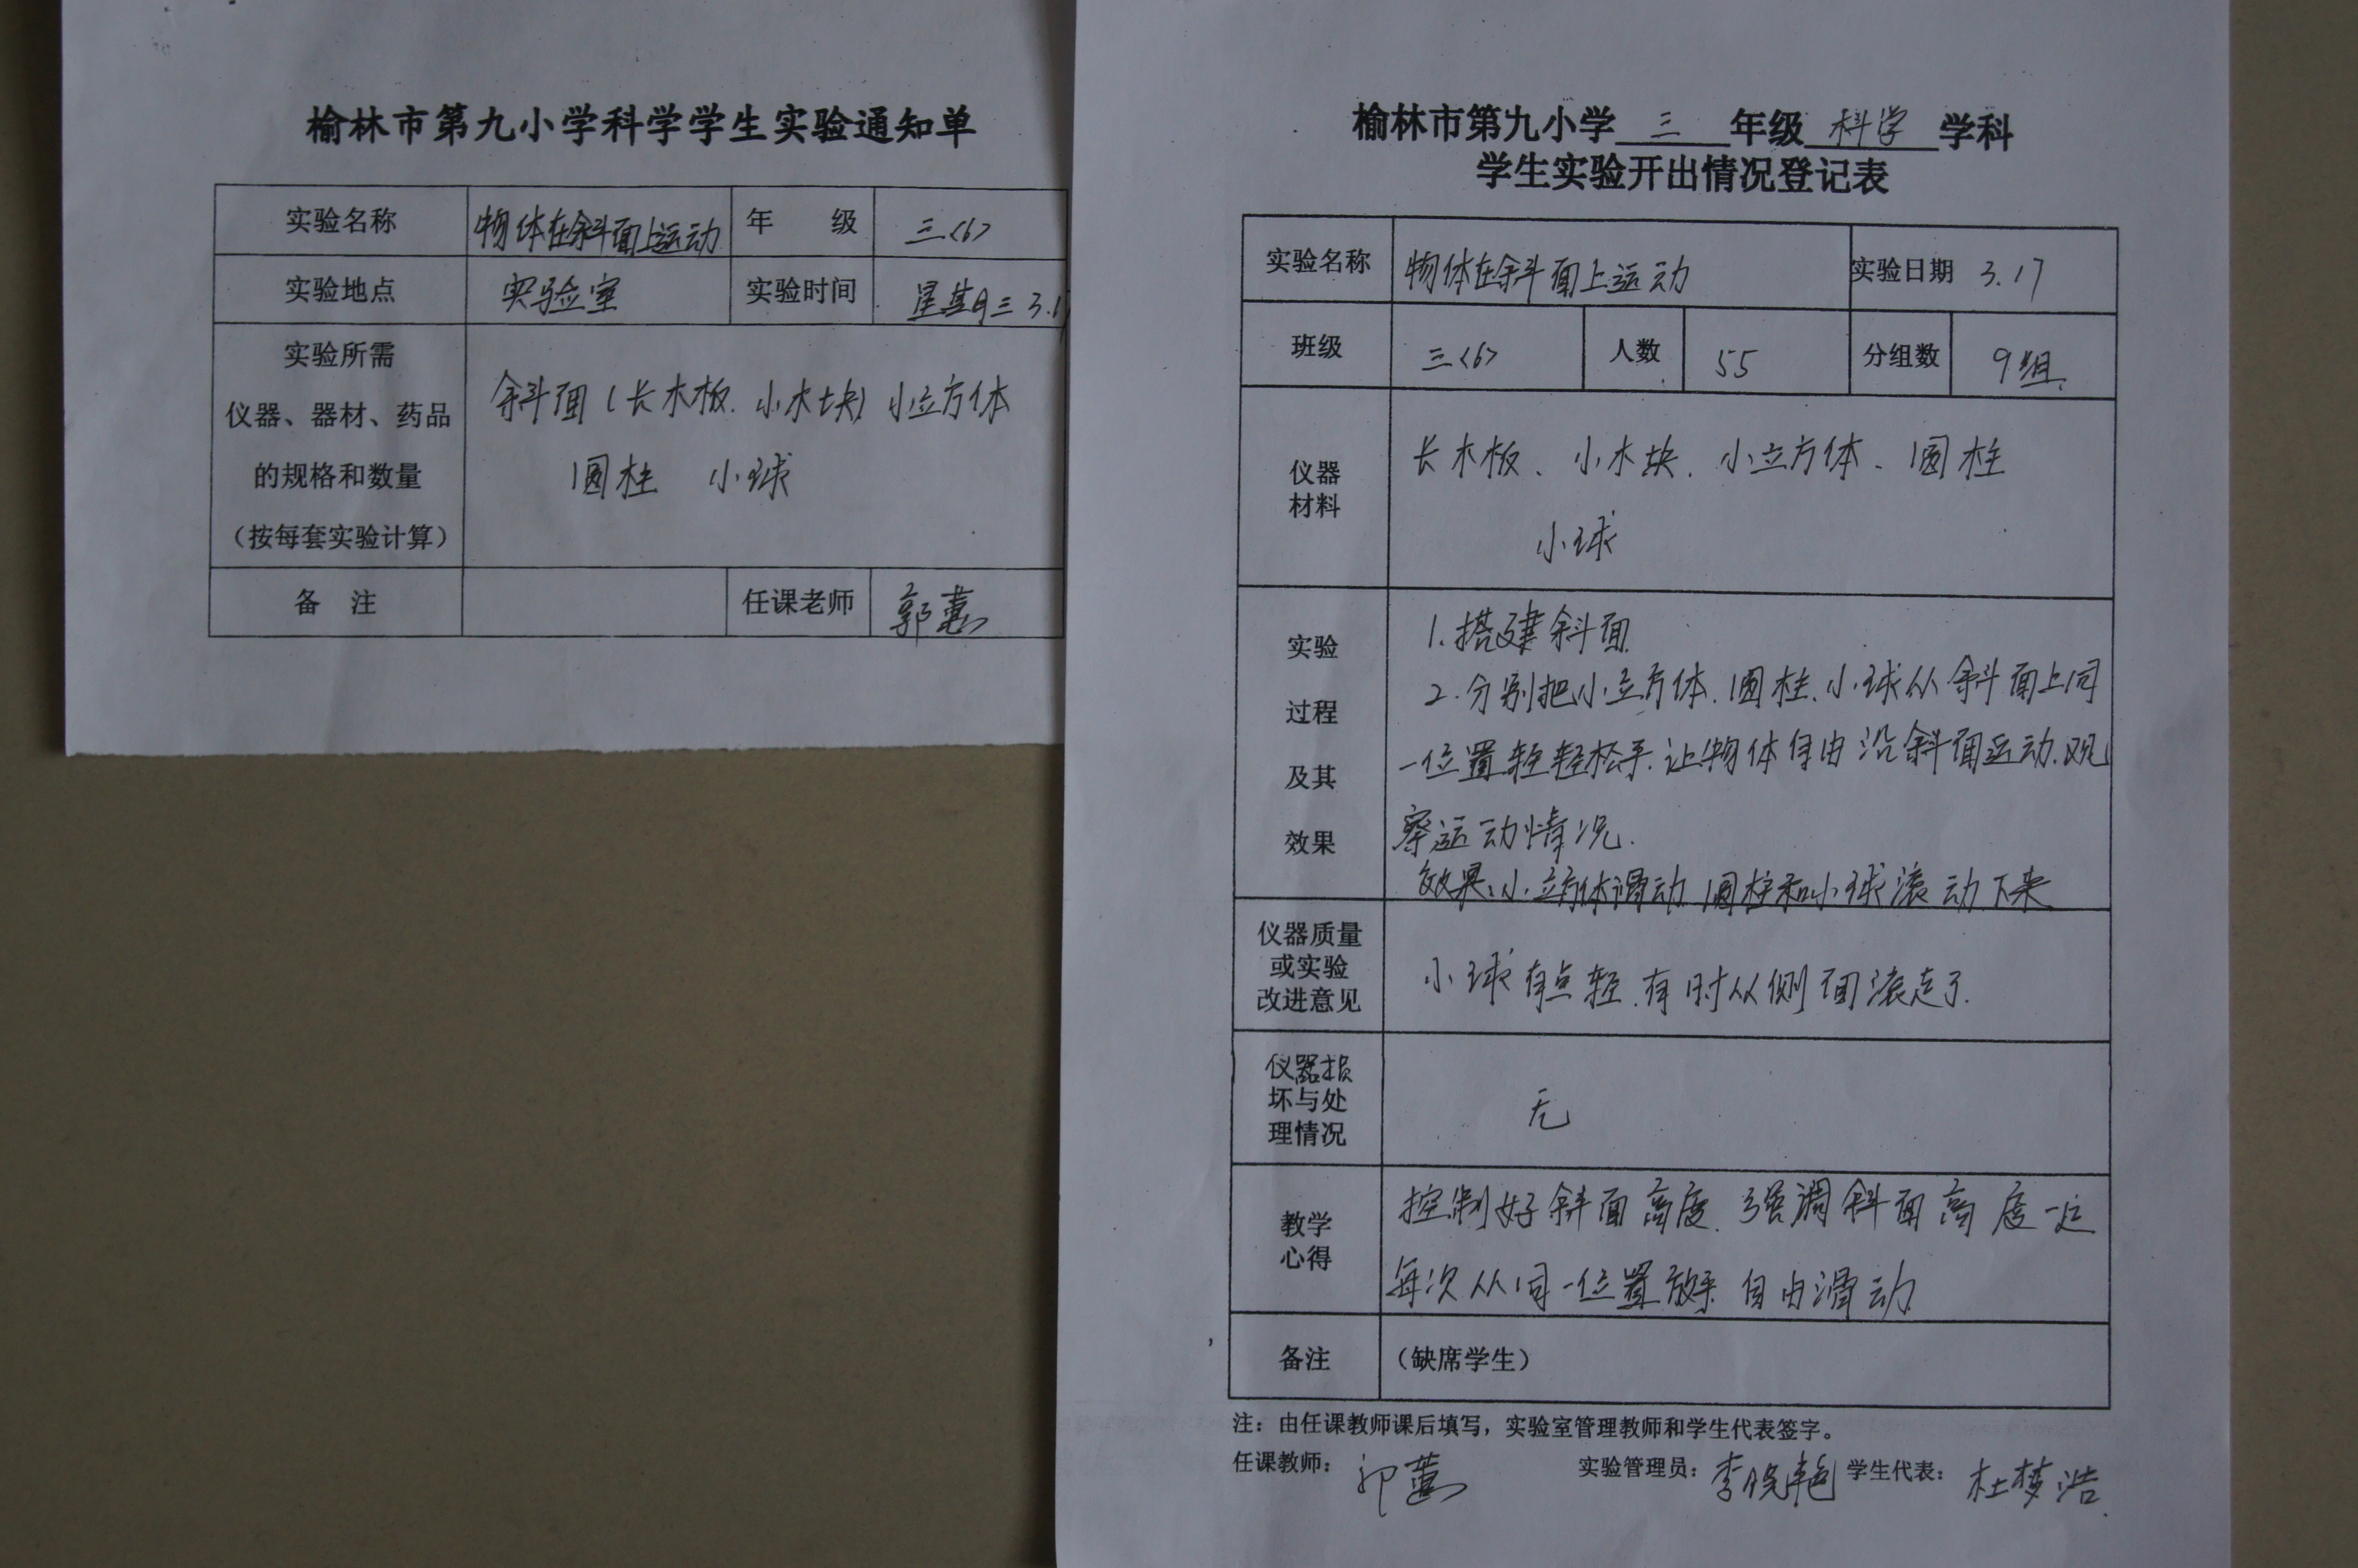 榆林市第九小学科学学生实验通知单
实验名称 物体在斜面上运动 年 级 三<6>
实验地点 实验室 实验时间 星期三 3.1
实验所需
仪器、器材、药品
的规格和数量
（按每套实验计算）
斜面（长木板、小木块）小立方体
圆柱 小球
备 注 任课老师 郭蕙
榆林市第九小学 三 年级 科学 学科
学生实验开出情况登记表
实验名称 物体在斜面上运动 实验日期 3.17
班级 三<6> 人数 55 分组数 9组
仪器
材料
长木板、小木块、小立方体、圆柱
小球
实验
过程
及其
效果
1.搭建斜面
2.分别把小立方体、圆柱、小球从斜面上同
一位置轻轻松手.让物体自由沿斜面运动.观
察运动情况.
效果:小立方体滑动 圆柱和小球滚动下来
仪器质量
或实验
改进意见
小球有点轻.有时从侧面滚走了.
仪器损
坏与处
理情况
无
教学
心得
控制好斜面高度.强调斜面高度一定
每次从同一位置放手 自由滑动
备注 （缺席学生）
注：由任课教师课后填写，实验室管理教师和学生代表签字。
任课教师： 郭蕙 实验管理员：李晓艳 学生代表：杜梦浩